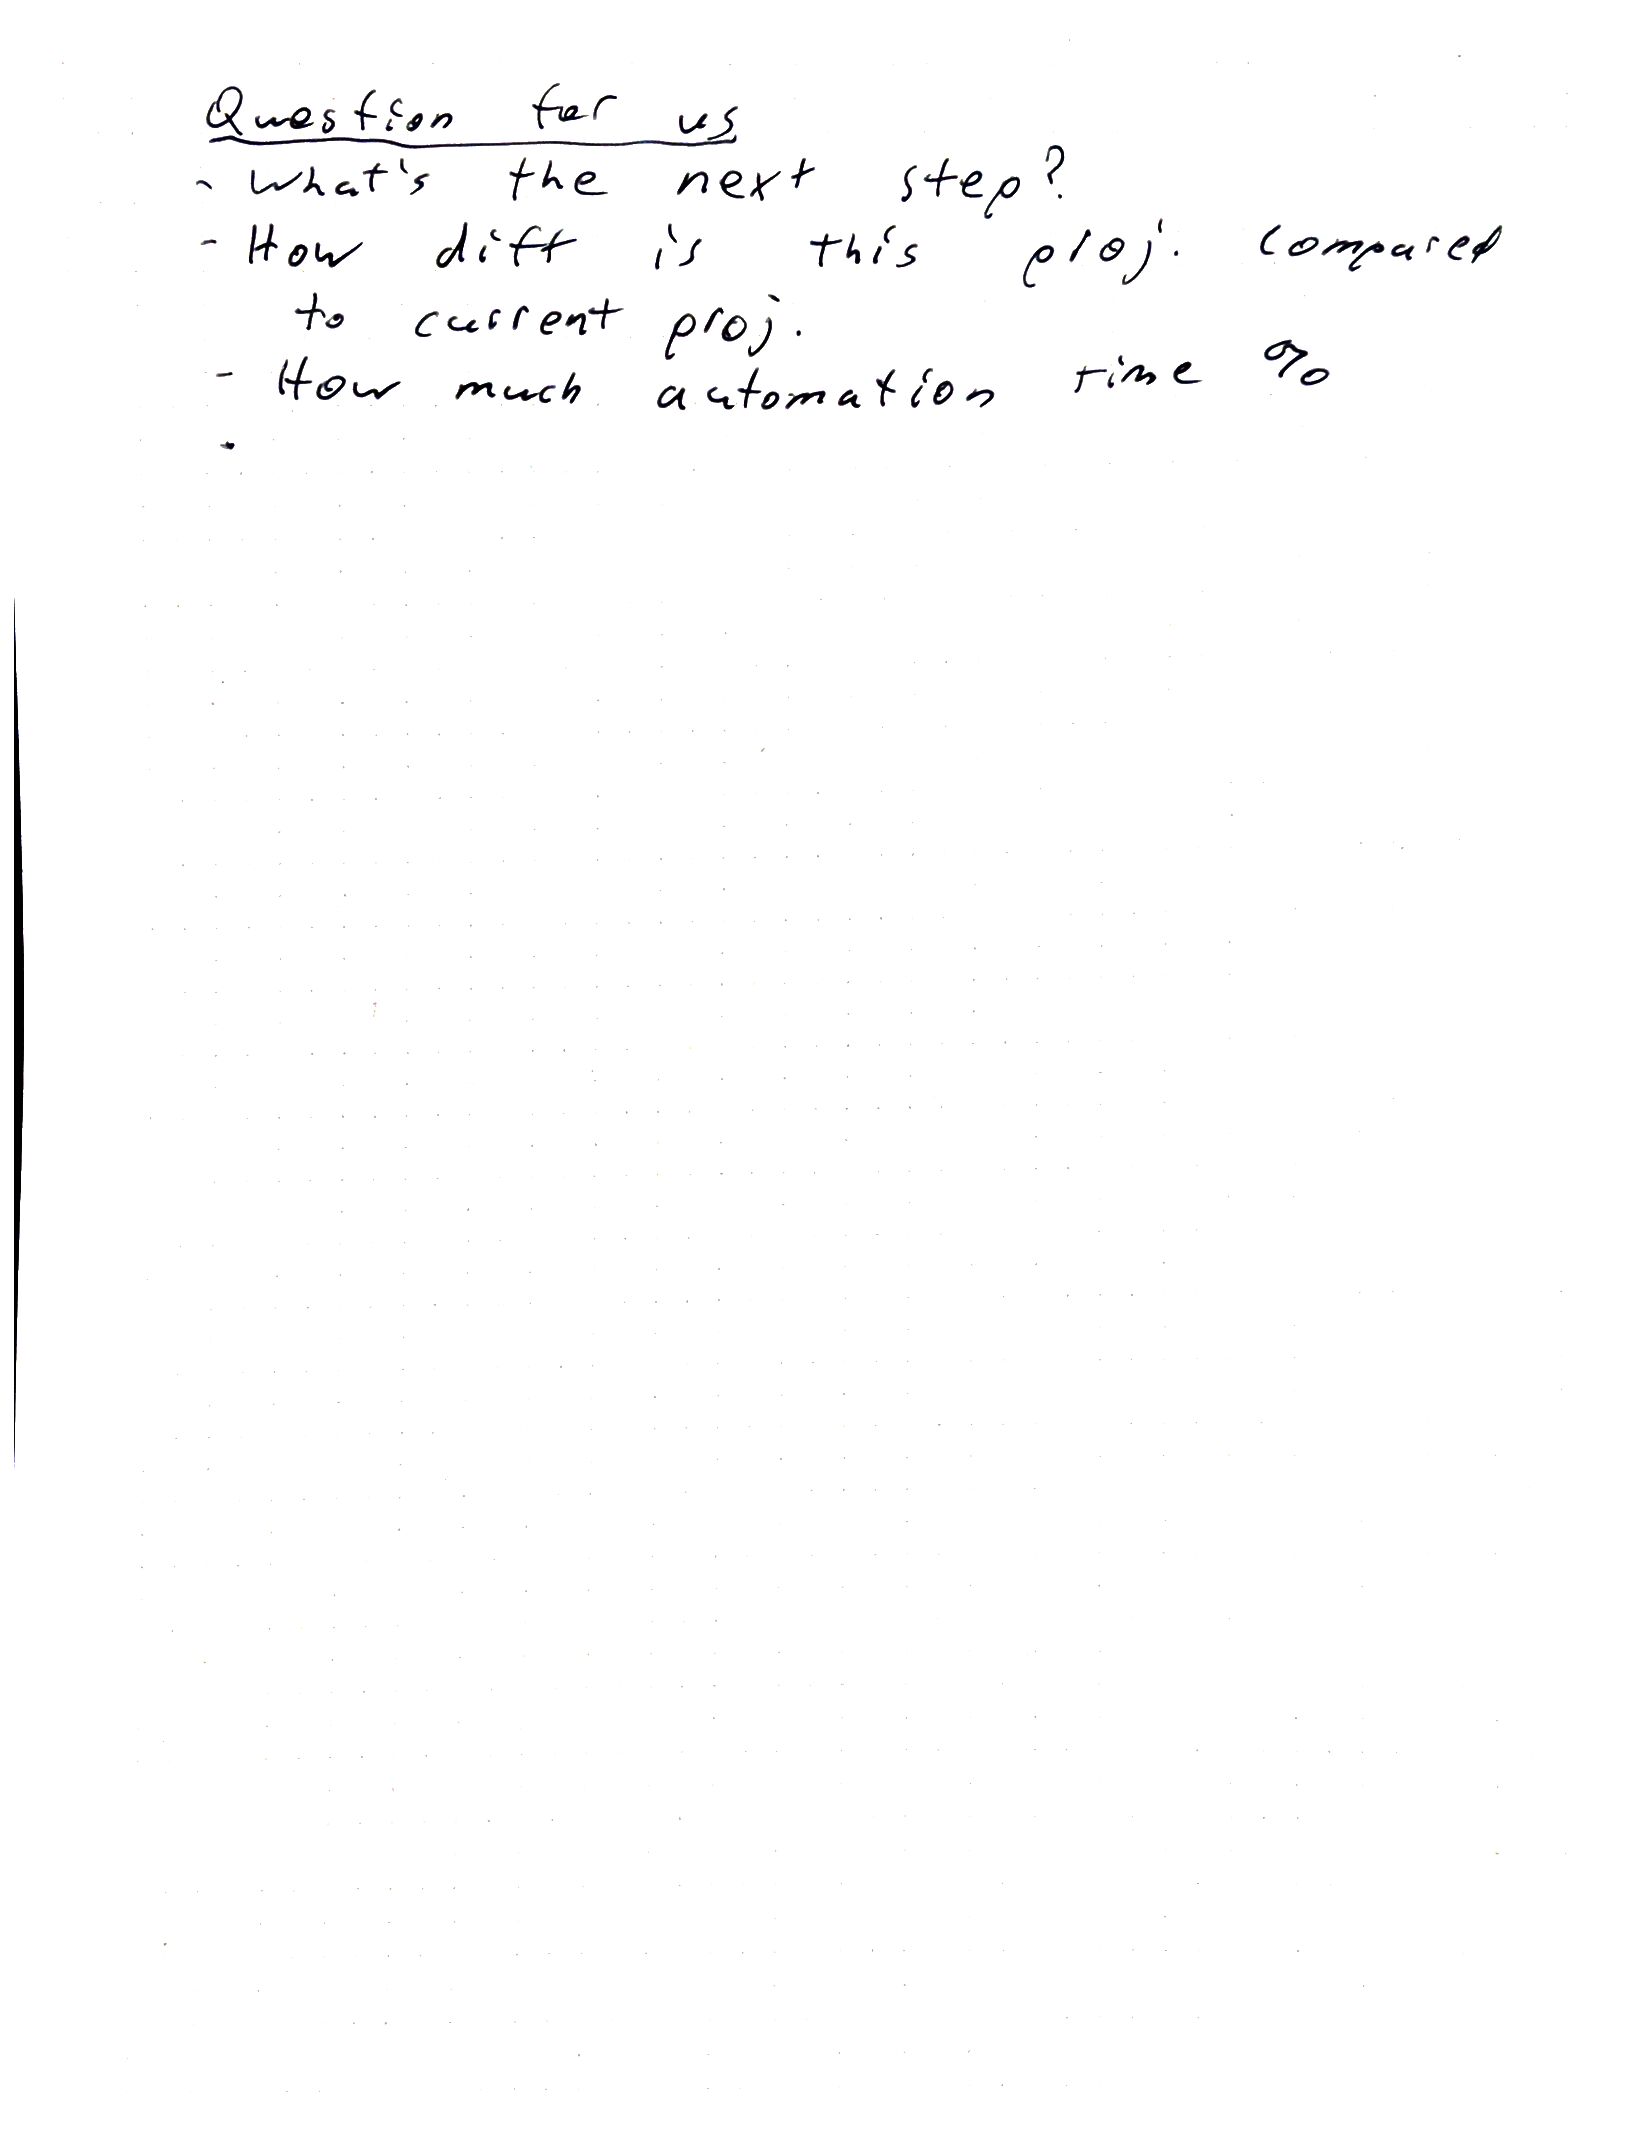 Question for us
- What's the next step?
- How diff is this proj. compared
to current proj.
- How much automation time %
-